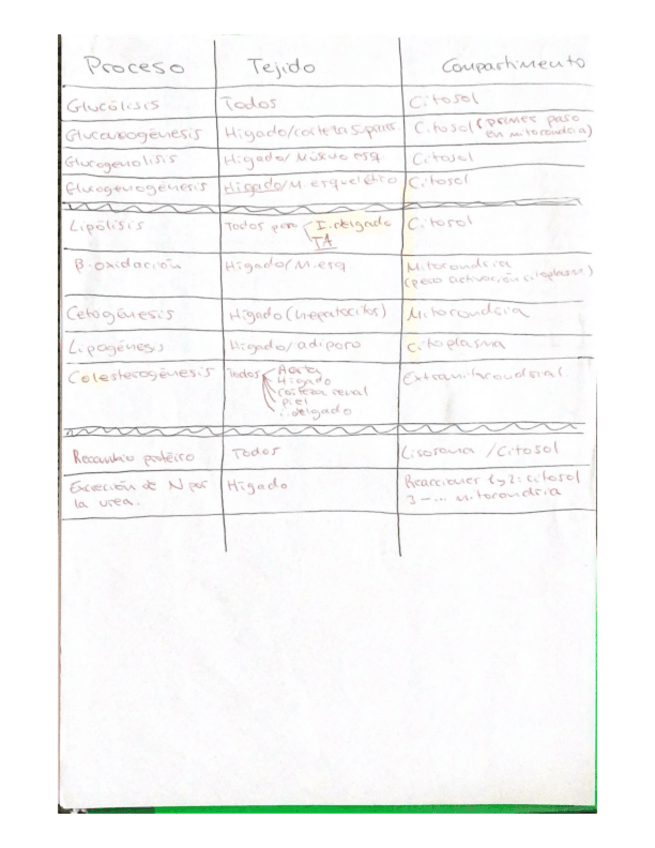 Proceso Tejido Compartimento
Glucólisis Todos Citosol
Glucaneogénesis Hígado/corteza Citosol (primer paso
en mitocondria)
Glucogenolisis Hígado/Músculo esq Citosol
Glucogenogénesis Hígado/M. esquelético Citosol
Lipólisis Todos pero I. delgado Citosol
TA
β-oxidación Hígado/M.esq Mitocondria
(pero activación citoplasma)
Cetogénesis Hígado (hepatocitos) Mitocondria
Lipogénesis Hígado/adiposo Citoplasma
Colesterogénesis Todos Aorta Extramitocondrial
Hígado
corteza renal
piel
i. delgado
Recambio protéico Todos Lisosoma / Citosol
Excreción de N por Hígado Reacciones 1y2: citosol
la urea. 3-... mitocondria